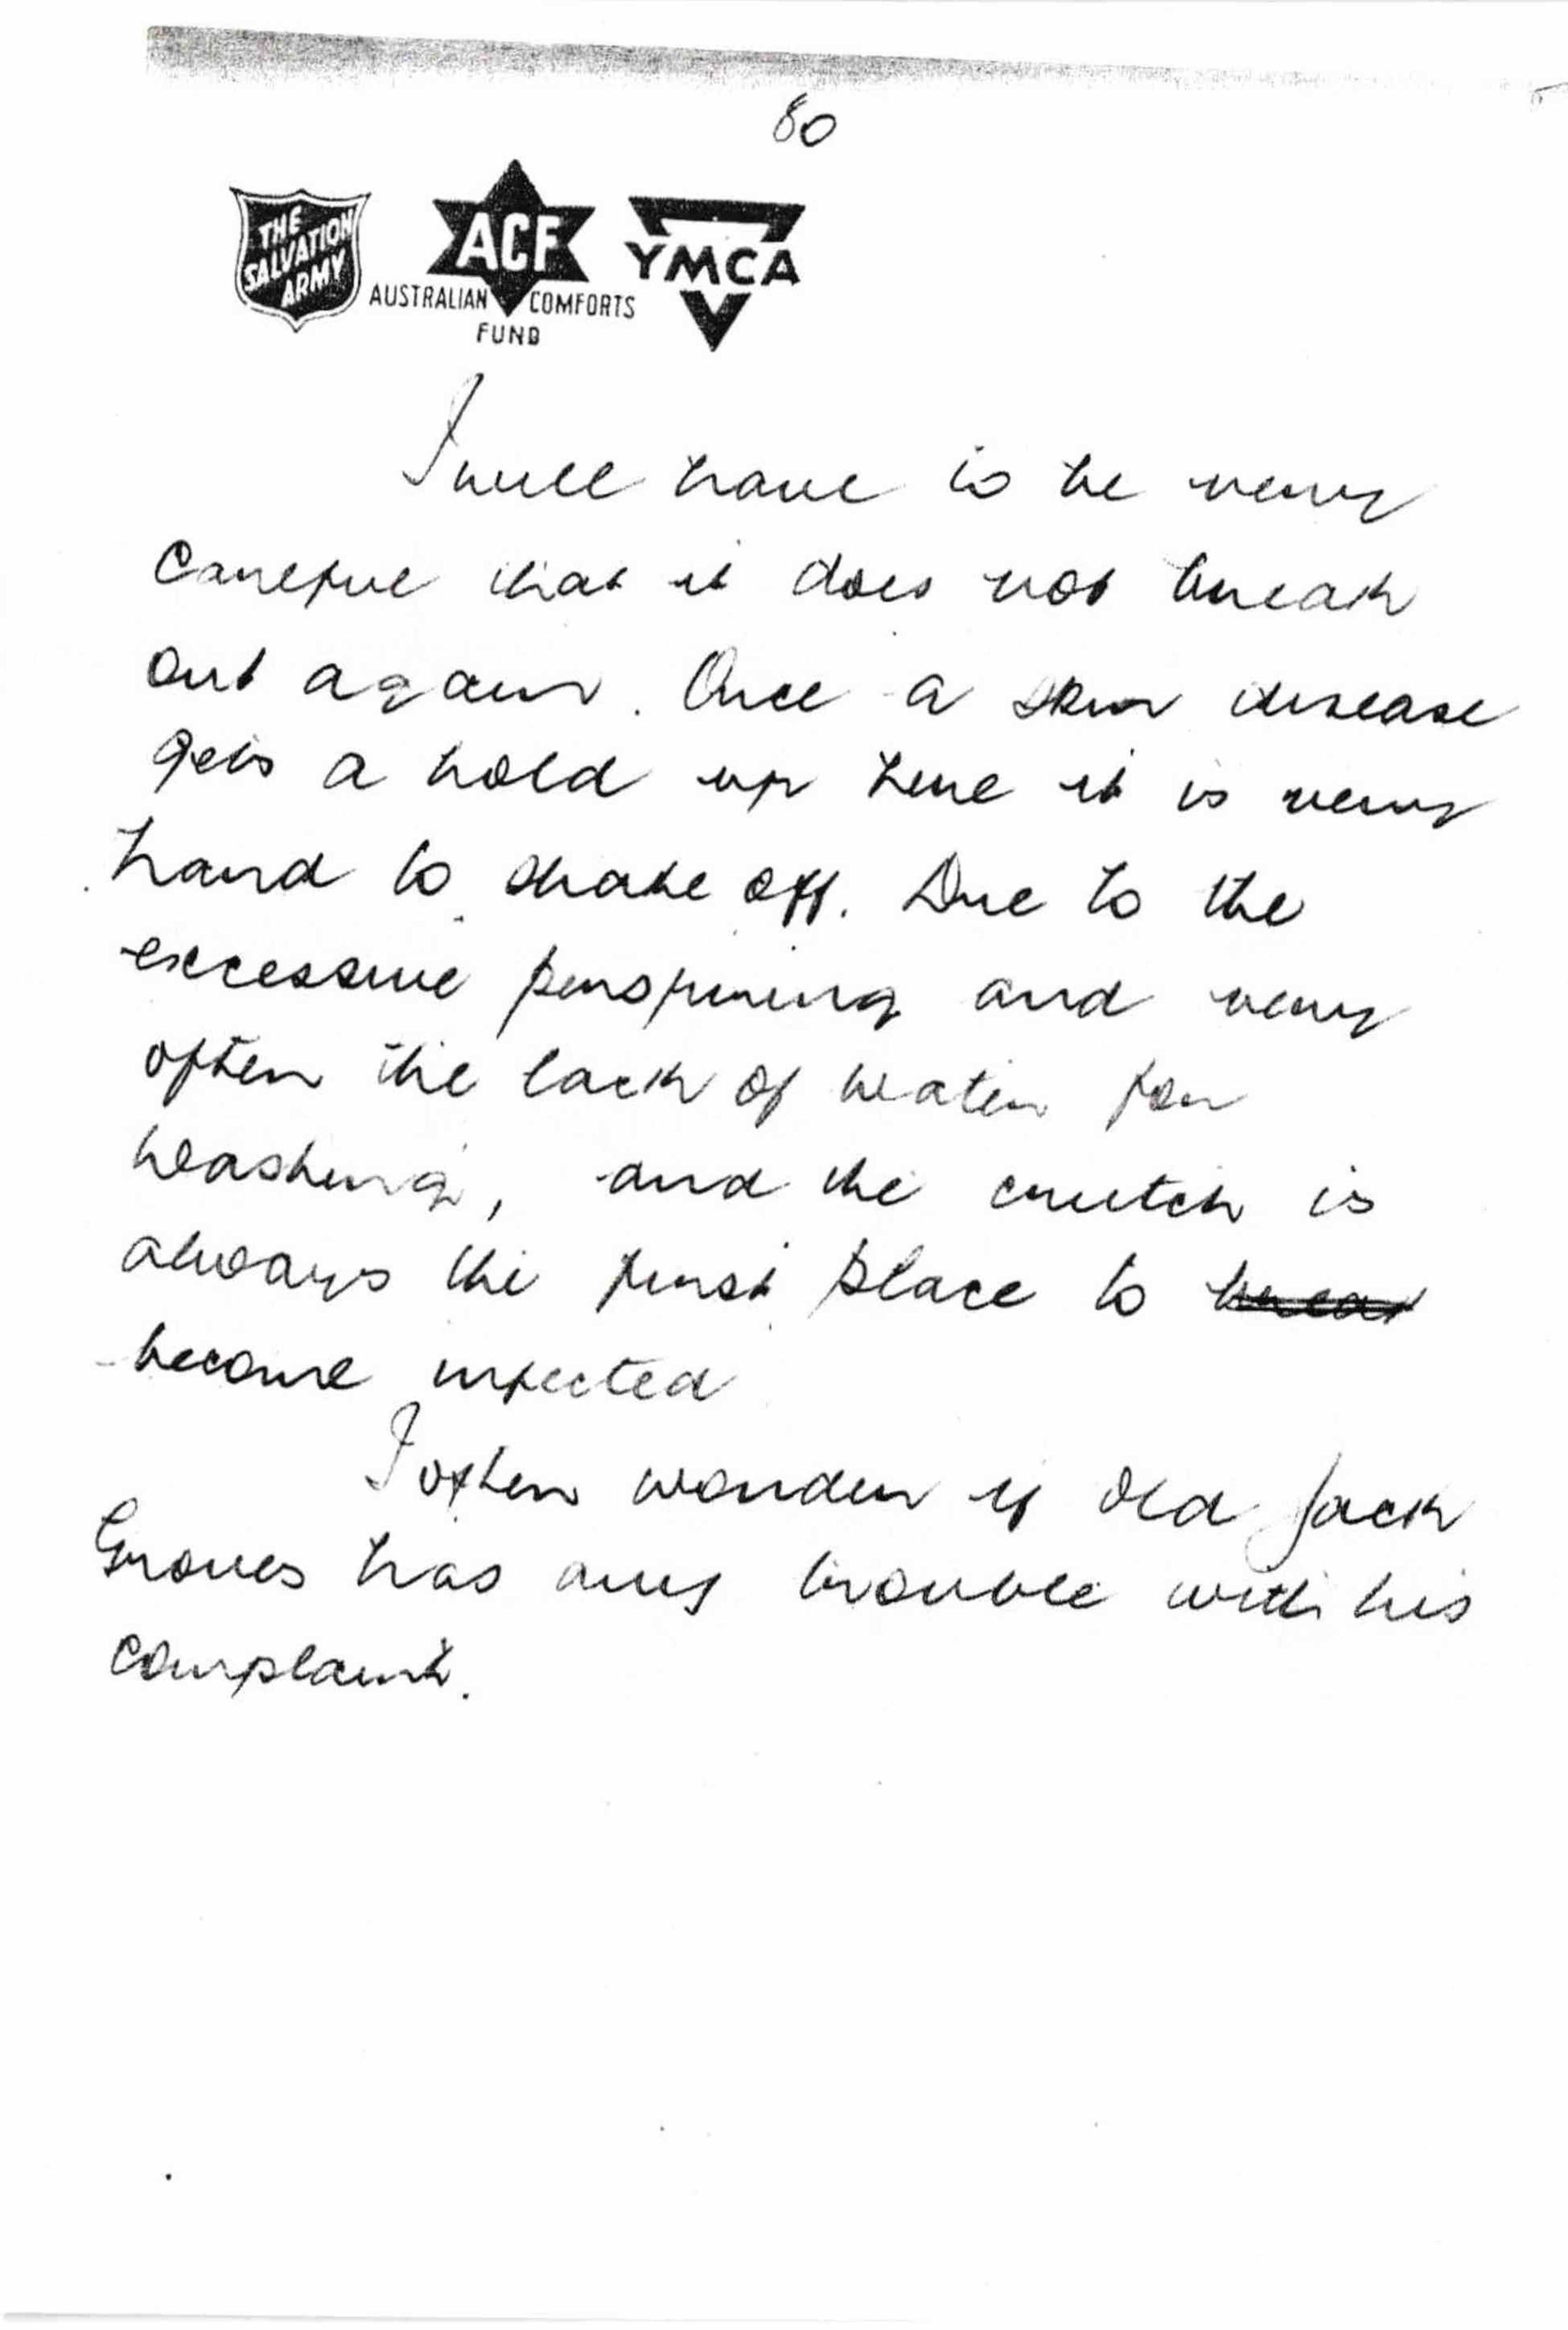 80
THE SALVATION ARMY
ACF
AUSTRALIAN COMFORTS FUND
YMCA
I will have to be very
careful that it does not break
out again. Once a skin disease
gets a hold up here it is very
hard to shake off. Due to the
excessive perspiring and very
often the lack of water for
washing, and the crutch is
always the first place to brea
become infected
I often wonder if old Jack
Groves has any trouble with his
complaint.